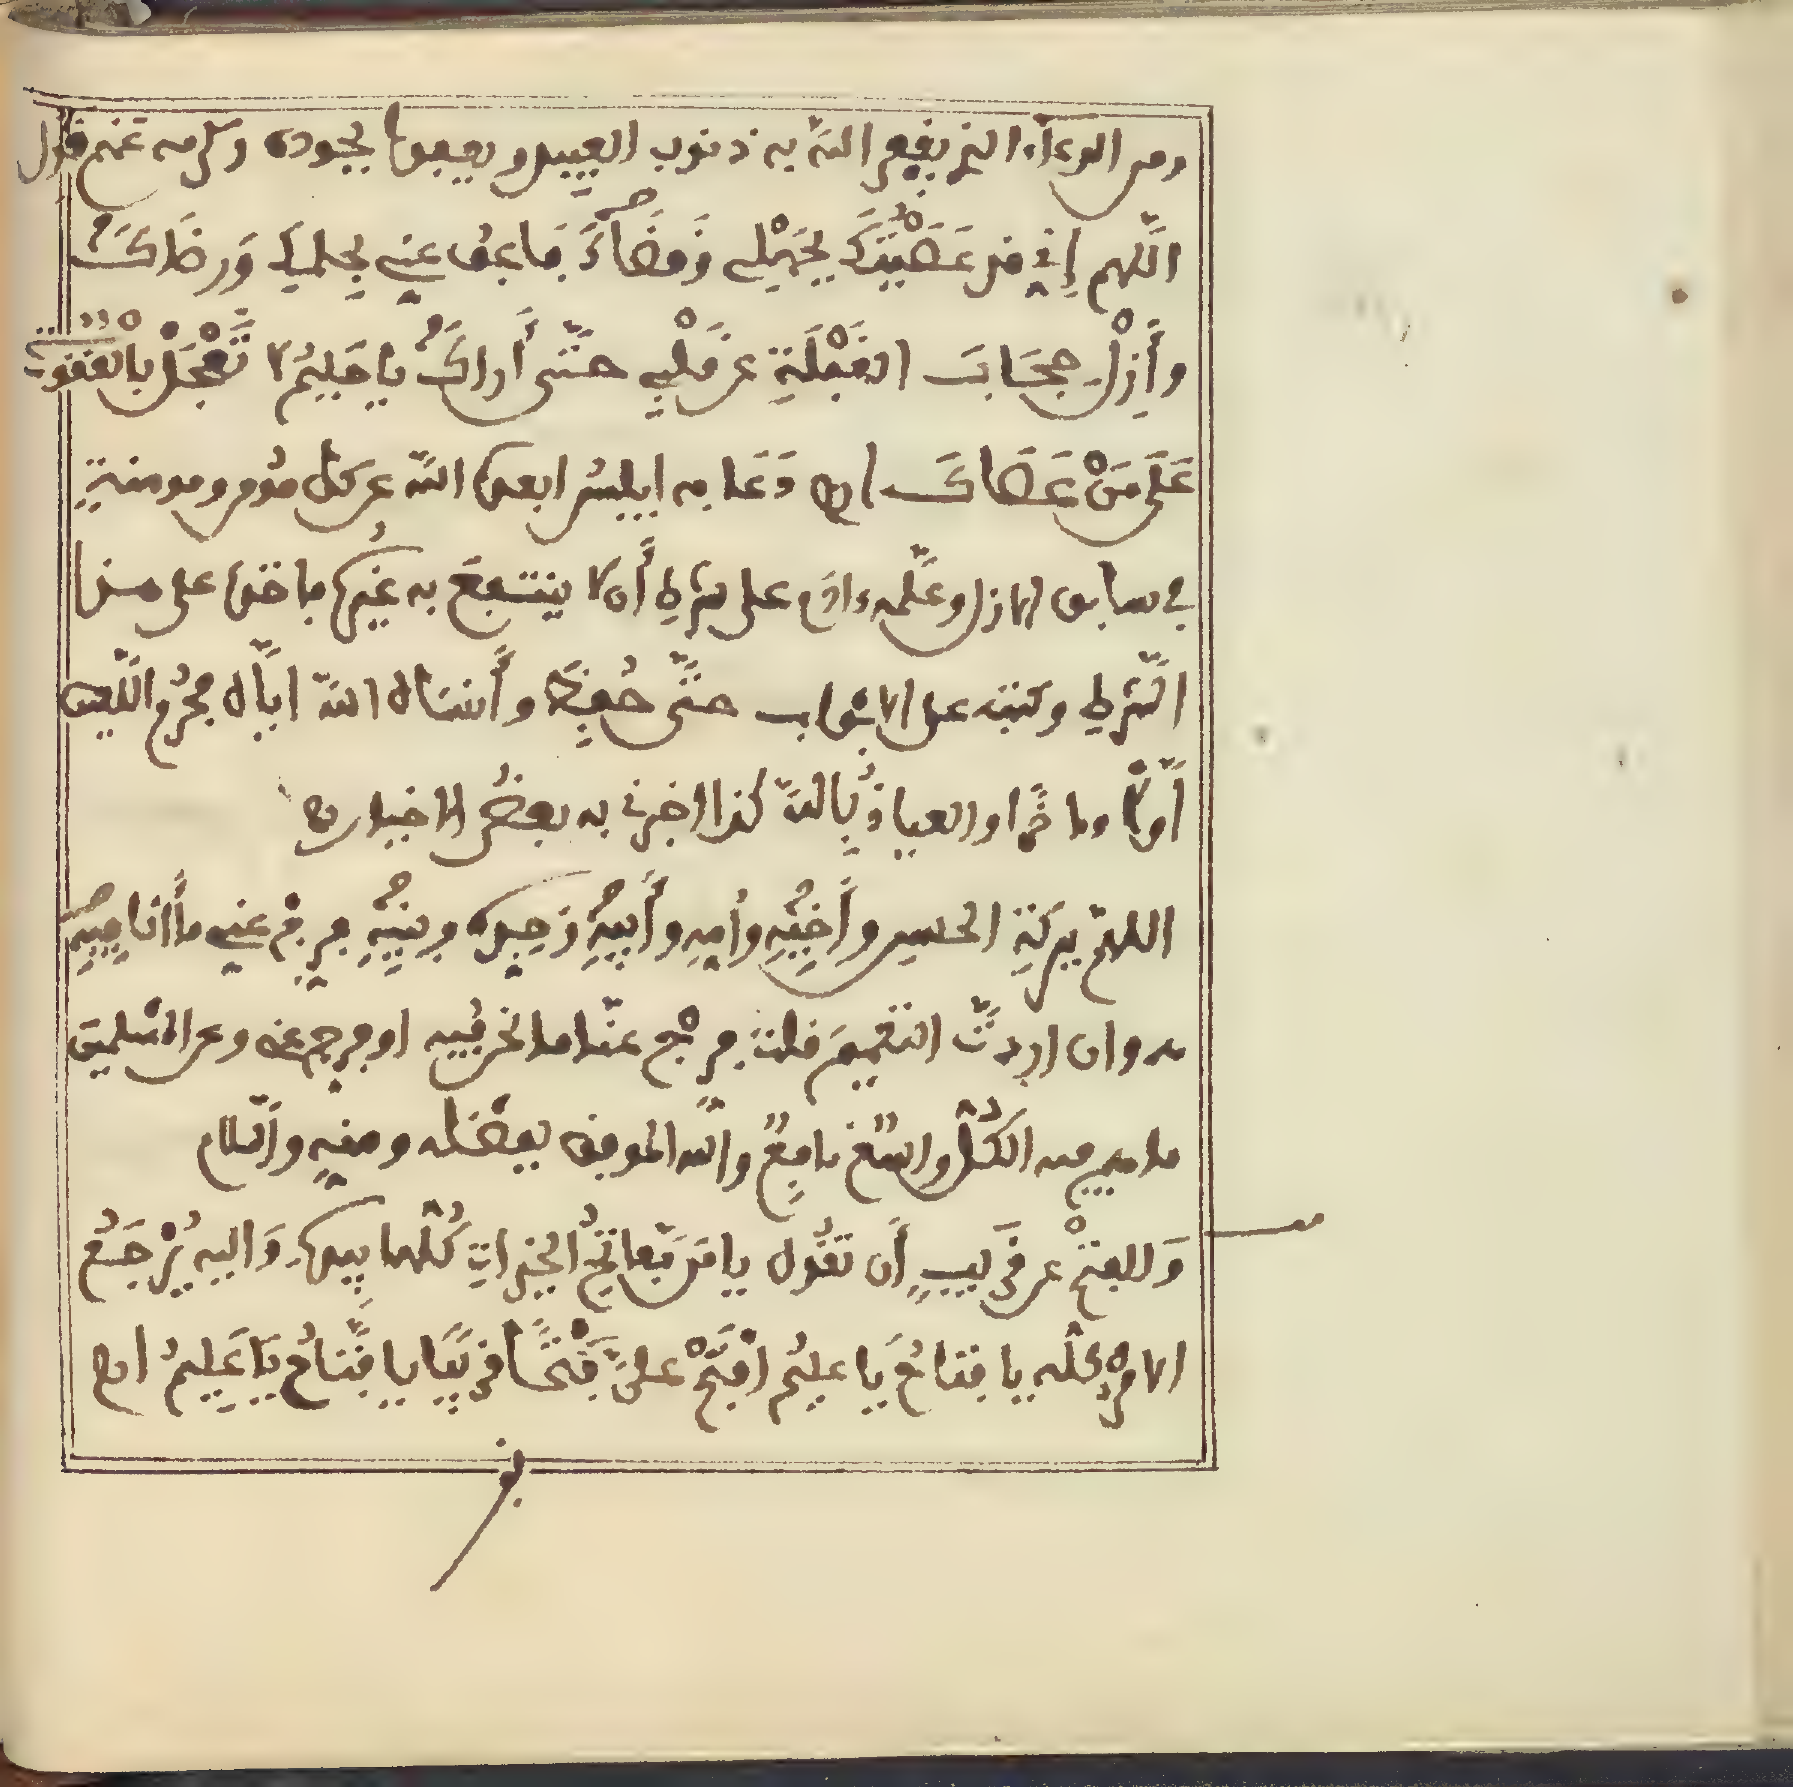 ومن الدعاء الذي يغفر الله به ذنوب العبيد ويعفوا بجوده وكرمه عنهم قول
اللَّهم إني قد عَصَيْتُكَ بِجَهْلِي وَقَضَاكَ فاعف عني بِحلمك وَرِضَاكَ
وأَزِلْ حِجَابَ الغَفْلَةِ عن قَلْبِي حتَّى أَراكَ يا حَلِيمُ لا تَعْجَلْ بالعُقُوبَةِ
عَلَى مَنْ عَصَاكَ اﻫ دَعَا به ابليسُ ابعده اللّه عن كل مُومن ومومنةٍ
في سابق الازل وعلَّمه ءادم على شرط أَن لا ينتفعَ به غيرُه فاخذه على هذا
الشَّرط وكتبه على الابواب حتَّى حُفِظَ وأَنساه اللّه ايَّاه فحُرم اللّعين
أوَّلًا وءاخرًا والعياذُ بِاللّه كذا اخبرني به بعضُ الاخيار اﻫ
اللهمَّ ببركةِ الحسينِ وأَخِيهِ وأُمهِ وأَبِيهِ وَجَدِّه وبَنِيهِ فرِّجْ عني ما أَنا فِيهِ
ﻫ وان اردتَّ التعميمَ قلتَ فرجْ عنَّا ما نحن فيه او فرج عني وعن المسلمين
ما هم فيه الكلُّ واسعٌ نافعٌ واللّه الموفق بفضله ومنهِ والسّلام
وَللفتحْ عن قَرِيبٍ أَن تقُول يا مَن مَفَاتِحُ الخيراتِ كُلُّها بيده وَاليه يُرْجَعُ
الامرُ كلّه يا فتاحُ يَا عليمُ افْتَحْ علىَّ فَتْحًا قريبًا يا فتَّاحُ يَا عَلِيمُ اﻫ